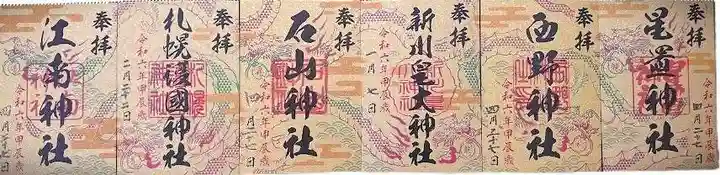 奉拝
星置神社
令和六年甲辰歳
四月二十七日
奉拝
西野神社
令和六年甲辰歳
四月二十七日
奉拝
新川皇大神社
令和六年甲辰歳
一月七日
奉拝
石山神社
令和六年甲辰歳
奉拝
札幌護國神社
令和六年甲辰歳
奉拝
江南神社
令和六年甲辰歳
四月二十七日